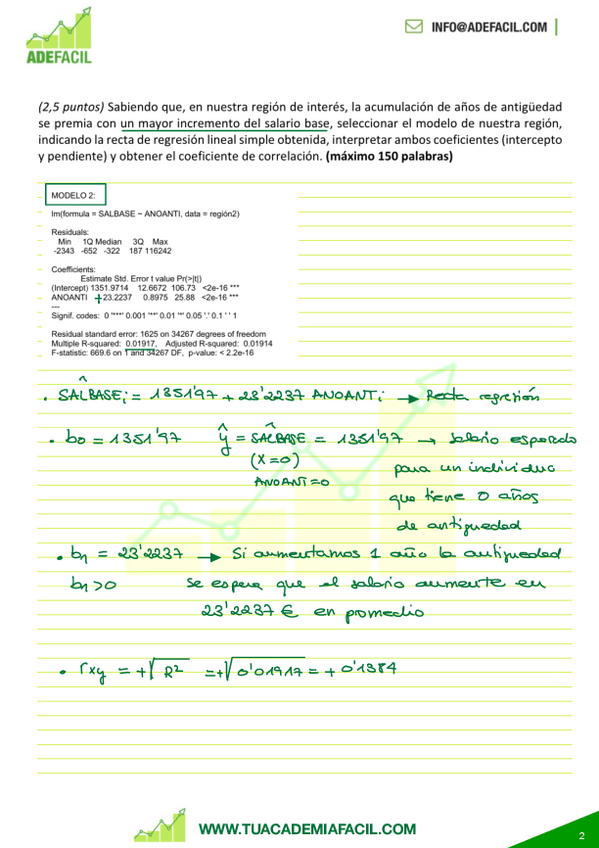 INFO@ADEFACIL.COM
ADEFACIL
(2,5 puntos) Sabiendo que, en nuestra región de interés, la acumulación de años de antigüedad
se premia con un mayor incremento del salario base, seleccionar el modelo de nuestra región,
indicando la recta de regresión lineal simple obtenida, interpretar ambos coeficientes (intercepto
y pendiente) y obtener el coeficiente de correlación. (máximo 150 palabras)
MODELO 2:
lm(formula = SALBASE ~ ANOANTI, data = región2)
Residuals:
Min 1Q Median 3Q Max
-2343 -652 -322 187 116242
Coefficients:
Estimate Std. Error t value Pr(>|t|)
(Intercept) 1351.9714 12.6672 106.73 <2e-16 ***
ANOANTI +23.2237 0.8975 25.88 <2e-16 ***
---
Signif. codes: 0 '***' 0.001 '**' 0.01 '*' 0.05 '.' 0.1 ' ' 1
Residual standard error: 1625 on 34267 degrees of freedom
Multiple R-squared: 0.01917, Adjusted R-squared: 0.01914
F-statistic: 669.6 on 1 and 34267 DF, p-value: < 2.2e-16
. SALBASÊi = 1351'97 + 23'2237 ANOANTi → Recta regresión
. b0 = 1351'97 ŷ = SALBASÊ = 1351'97 → salario esperado
(X=0) para un individuo
ANOANT=0 que tiene 0 años
de antiguedad
. b1 = 23'2237 → Si aumentamos 1 año la antiguedad
b1>0 se espera que el salario aumente en
23'2237 € en promedio
. rxy = +√R² = +√0'01917 = + 0'1384
WWW.TUACADEMIAFACIL.COM
2